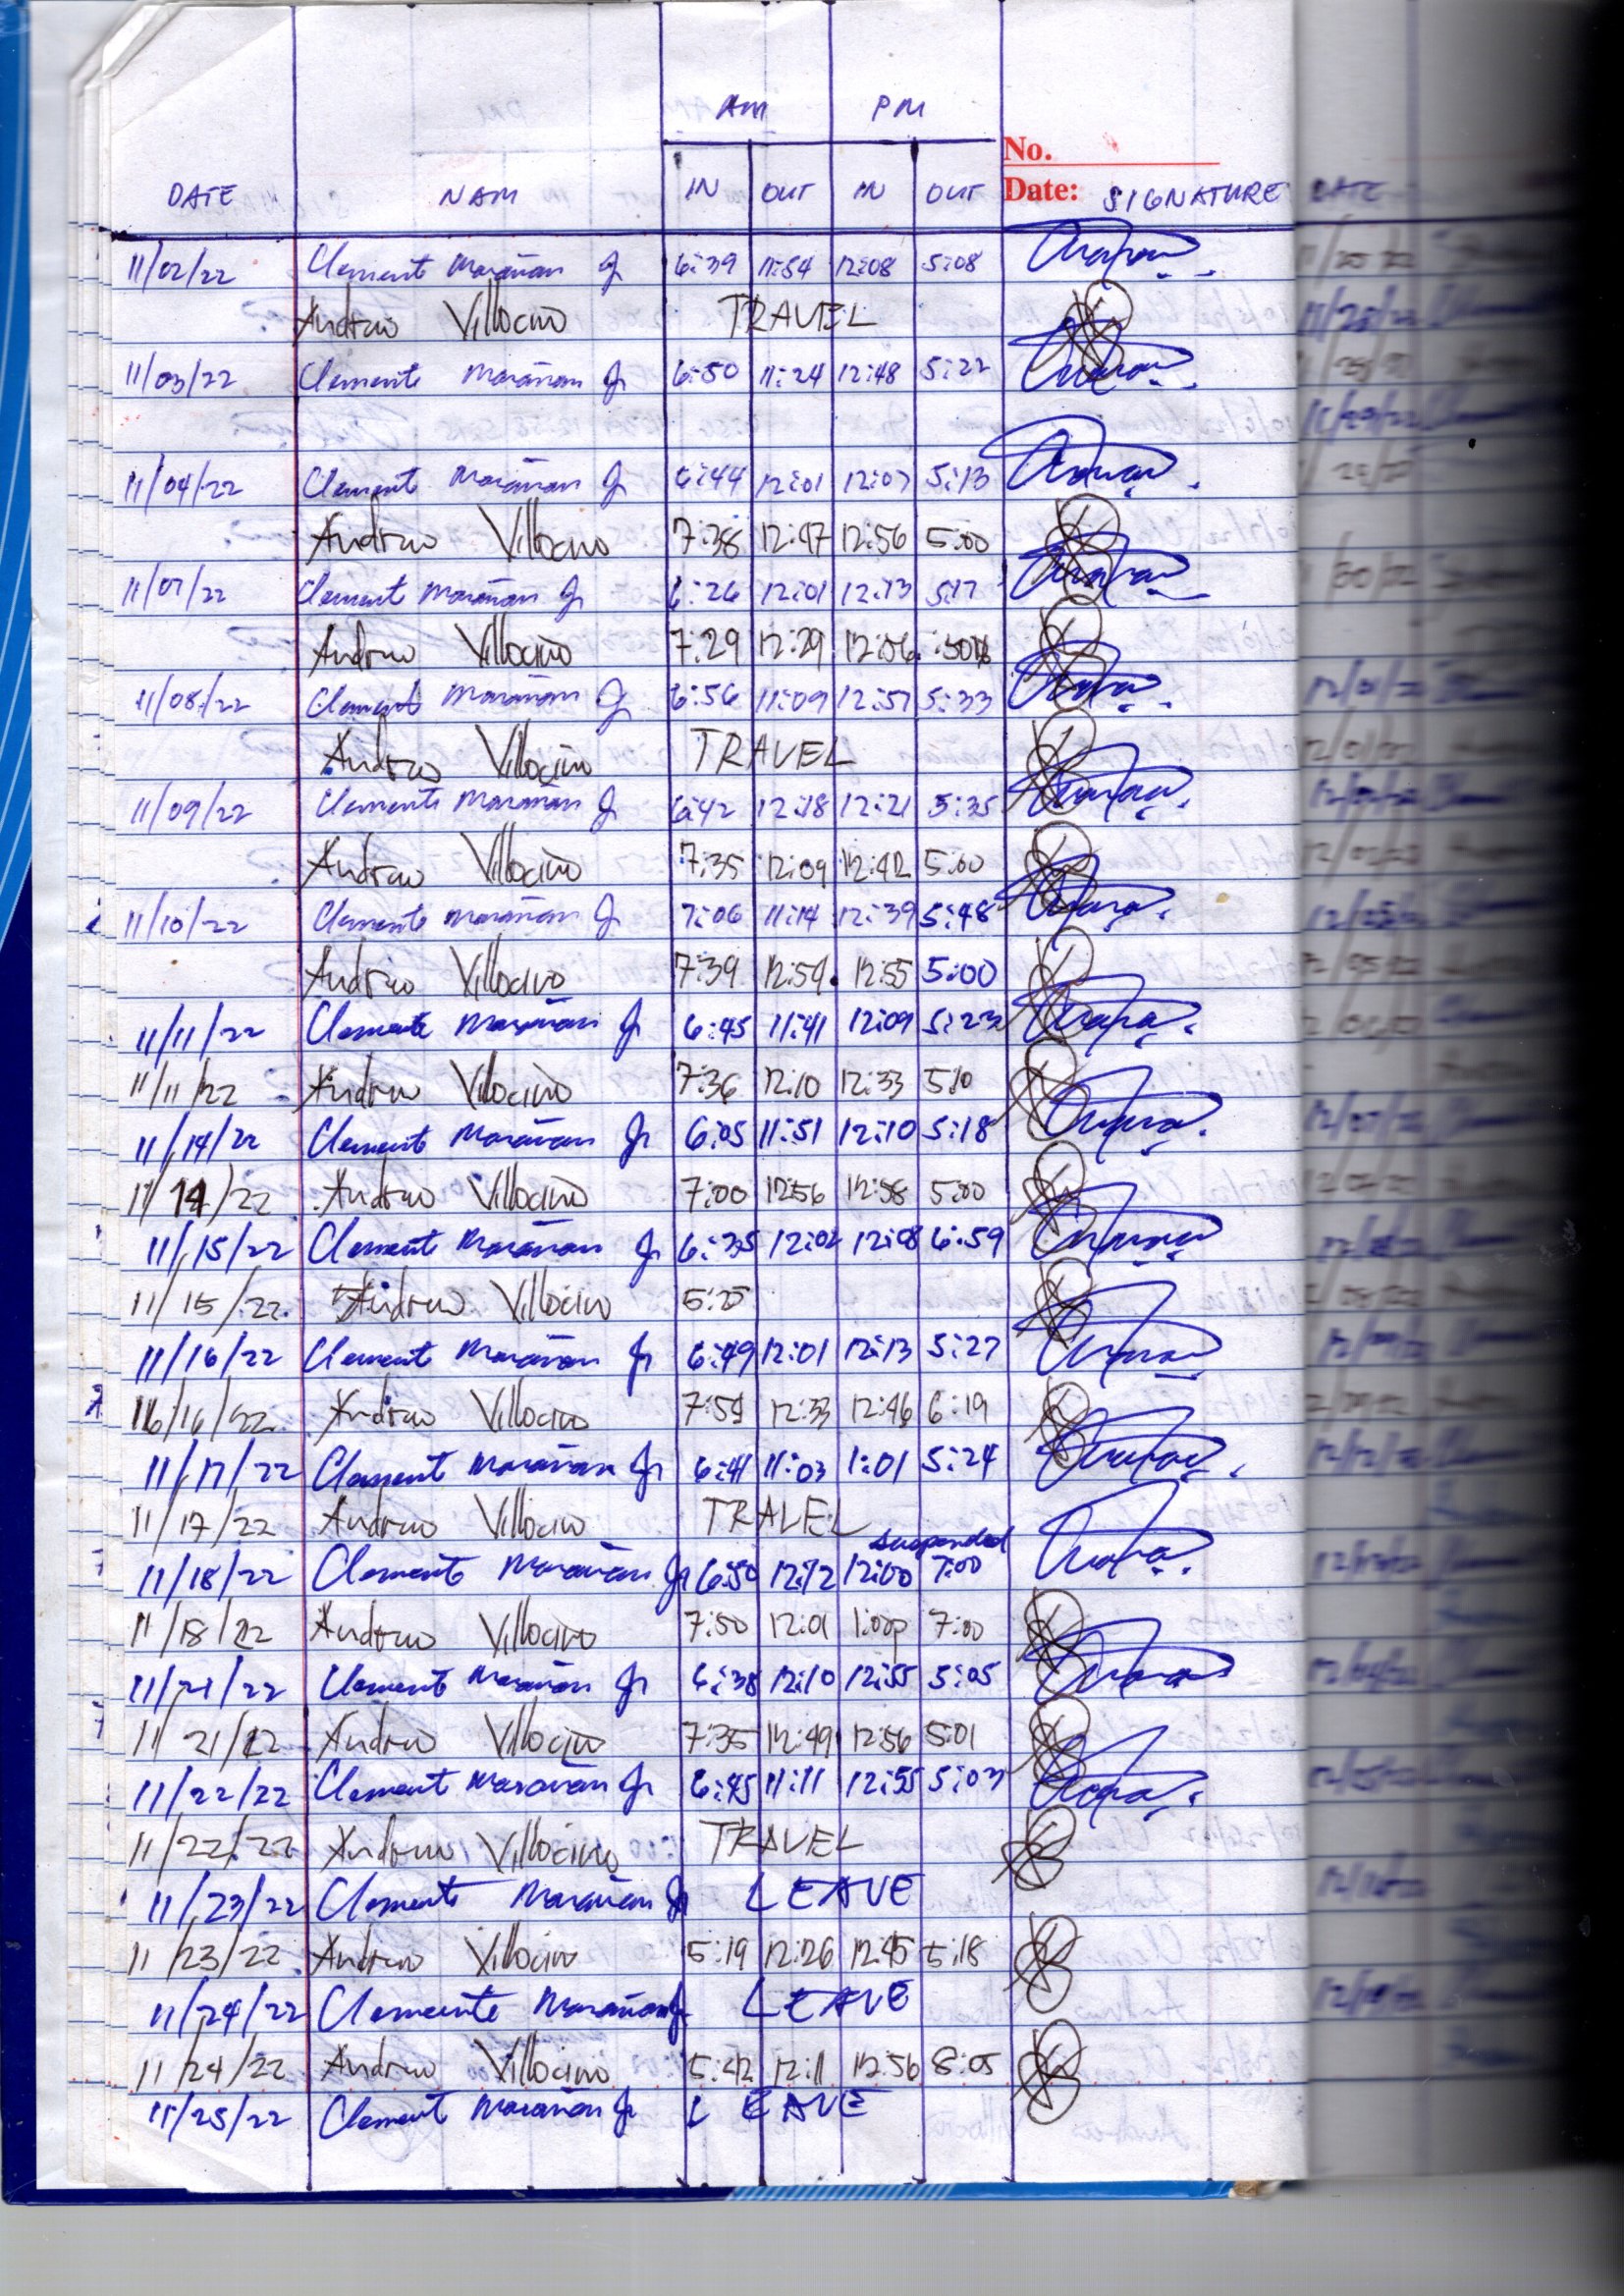 AM PM
No.
DATE NAM IN OUT IN OUT Date: SIGNATURE DATE
11/02/22 Clemente Marañan Jr 6:39 11:54 12:08 5:08
Andrew Villocino TRAVEL
11/03/22 Clemente Marañan Jr 6:50 11:24 12:48 5:22
11/04/22 Clemente Marañan Jr 6:44 12:01 12:07 5:13
Andrew Villocino 7:38 12:47 12:56 5:00
11/07/22 Clemente Marañan Jr 6:26 12:01 12:13 5:17
Andrew Villocino 7:29 12:29 12:56
11/08/22 Clemente Marañan Jr 6:56 11:09 12:57 5:33
Andrew Villocino TRAVEL
11/09/22 Clemente Marañan Jr 6:42 12:18 12:21 5:35
Andrew Villocino 7:35 12:09 12:42 5:00
11/10/22 Clemente Marañan Jr 7:06 11:14 12:39 5:48
Andrew Villocino 7:39 12:59 12:55 5:00
11/11/22 Clemente Marañan Jr 6:45 11:41 12:09 5:23
11/11/22 Andrew Villocino 7:36 12:10 12:33 5:10
11/14/22 Clemente Marañan Jr 6:05 11:51 12:10 5:18
11/14/22 Andrew Villocino 7:00 12:56 12:58 5:00
11/15/22 Clemente Marañan Jr 6:35 12:02 12:08 6:59
11/15/22 Andrew Villocino 5:25
11/16/22 Clemente Marañan Jr 6:49 12:01 12:13 5:27
116/16/22 Andrew Villocino 7:59 12:33 12:46 6:19
11/17/22 Clemente Marañan Jr 6:41 11:03 1:01 5:24
11/17/22 Andrew Villocino TRAVEL
suspended
11/18/22 Clemente Marañan Jr 6:50 12:12 12:00 7:00
11/18/22 Andrew Villocino 7:50 12:01 1:00p 7:00
11/21/22 Clemente Marañan Jr 6:38 12:10 12:55 5:05
11/21/22 Andrew Villocino 7:35 12:49 12:56 5:01
11/22/22 Clemente Marañan Jr 6:45 11:11 12:55 5:03
11/22/22 Andrew Villocino TRAVEL
11/23/22 Clemente Marañan Jr LEAVE
11/23/22 Andrew Villocino 5:19 12:26 12:45 5:18
11/24/22 Clemente Marañan Jr LEAVE
11/24/22 Andrew Villocino 5:42 12:11 12:56 8:05
11/25/22 Clemente Marañan Jr LEAVE